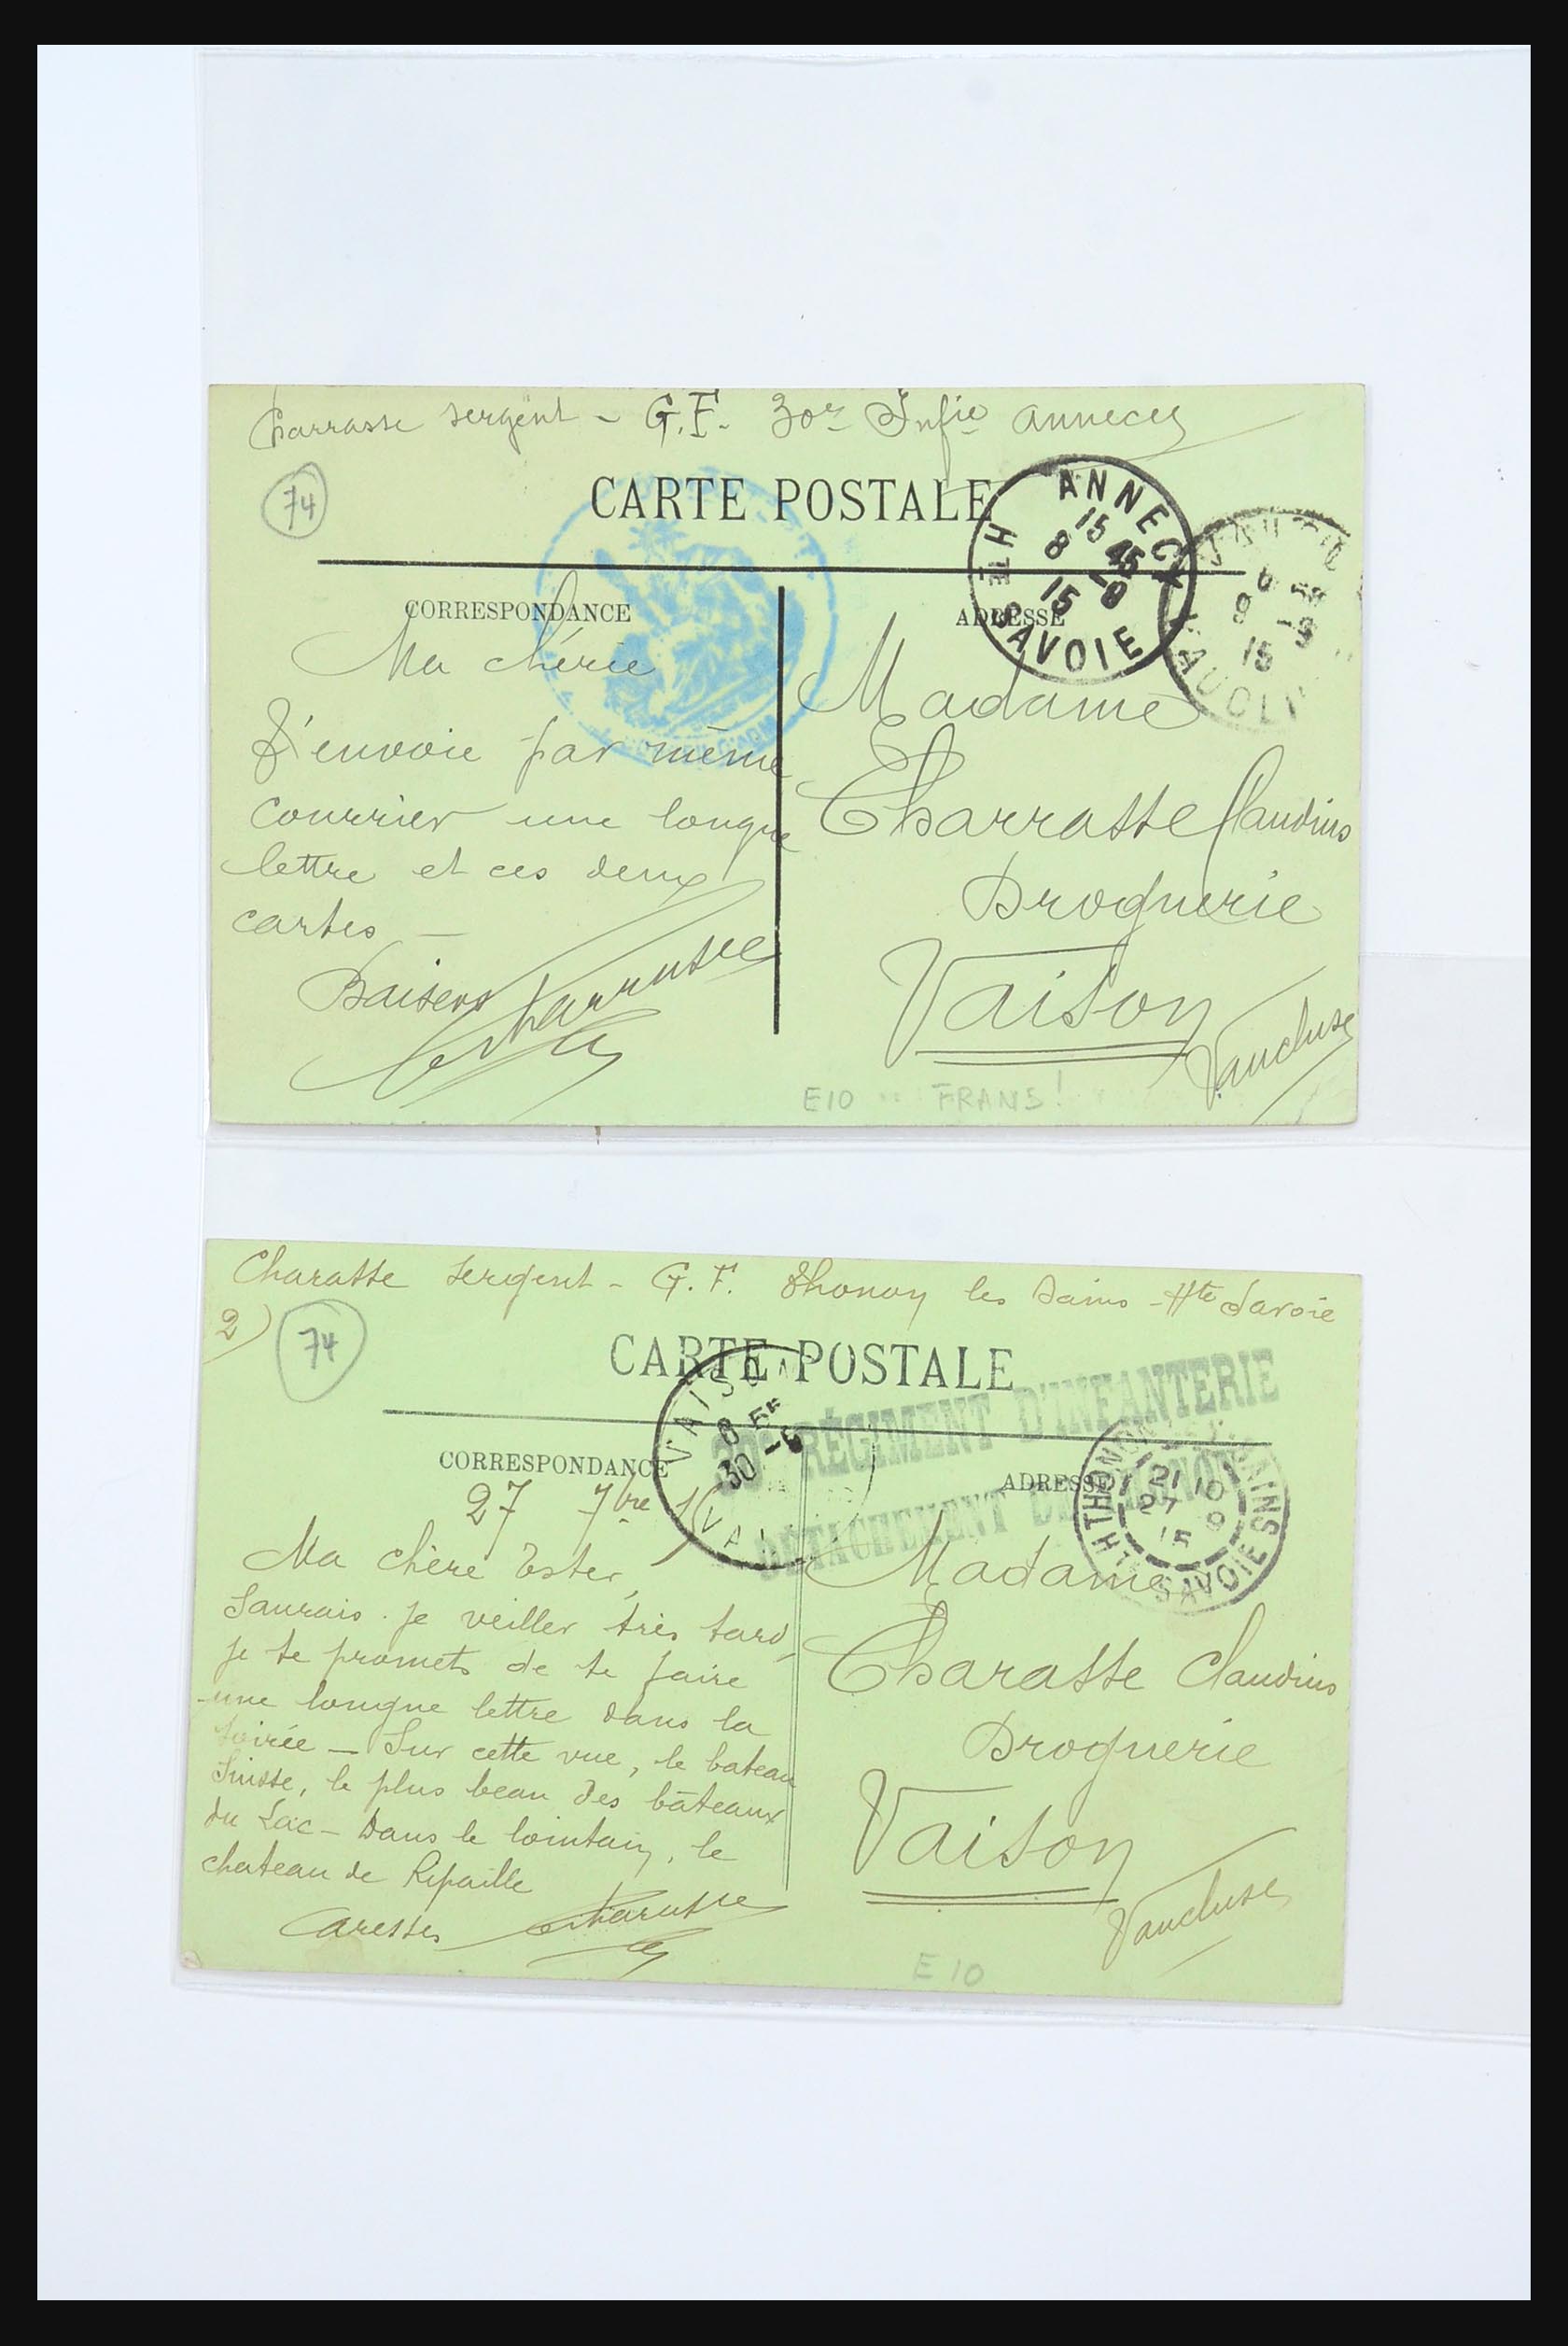 Charrasse sergent - G.F. 30e Infie Annecy
74
CARTE POSTALE
ANNECY
15 45
8 -9
15
HTE SAVOIE
9 -9
15
CORRESPONDANCE
ADRESSE
Ma chérie
J'envoie par même
courrier une longue
lettre et ces deux
cartes -
Baisers
Charrasse
Madame
Charrasse Claudius
Droguerie
Vaison
Vaucluse
E10 FRANS!
Charasse sergent - G.F. Thonon les Bains - Hte Savoie
2)
74
CARTE POSTALE
VAISON
8 55
30 -9
30e RÉGIMENT D'INFANTERIE
DÉTACHEMENT DE THONON
THONON-LES-BAINS
21 10
27 9
15
HTE SAVOIE
CORRESPONDANCE
ADRESSE
27 7bre 15
Ma chère Ester,
Saurais-je veiller très tard,
je te promets de te faire
une longue lettre dans la
soirée - Sur cette vue, le bateau
Suisse, le plus beau des bâteaux
du Lac - Dans le lointain, le
chateau de Ripaille
Caresses
Charasse
Madame
Charasse Claudius
Droguerie
Vaison
Vaucluse
E10